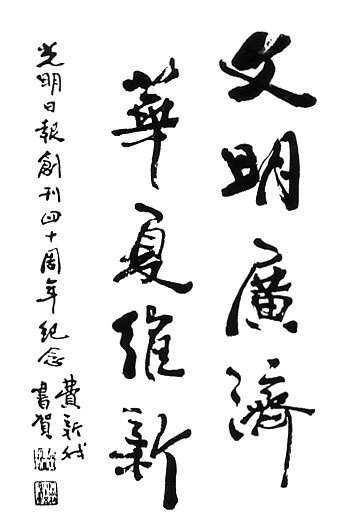 文明廣濟
華夏維新
光明日報創刊四十周年紀念
費新我
書賀